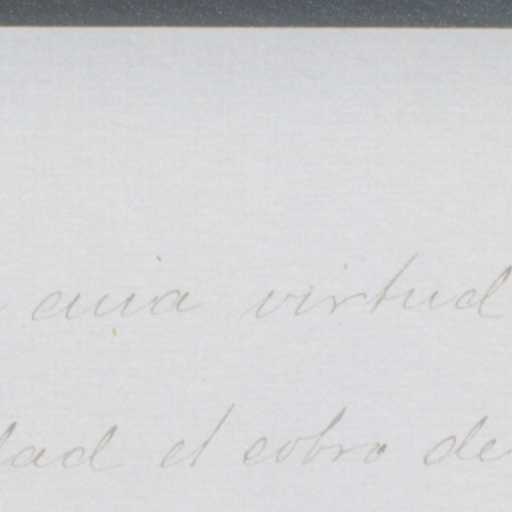 cuia virtud
dad el cobro de